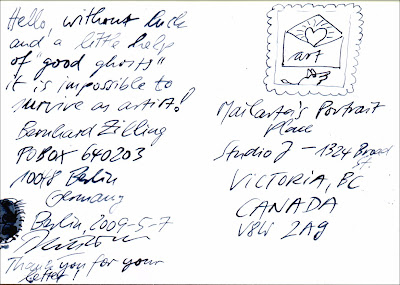 Hello, without luck
and a little help
of "good ghosts"
it is impossible to
survive as artist!
Bernhard Zilling
POBOX 640203
10048 Berlin
Germany
Berlin, 2009-5-7
Thank you for your
letter
art
Mailarta's Portrait
Place
Studio J - 1324 Broad
St.
VICTORIA, BC
CANADA
V8W 2A9